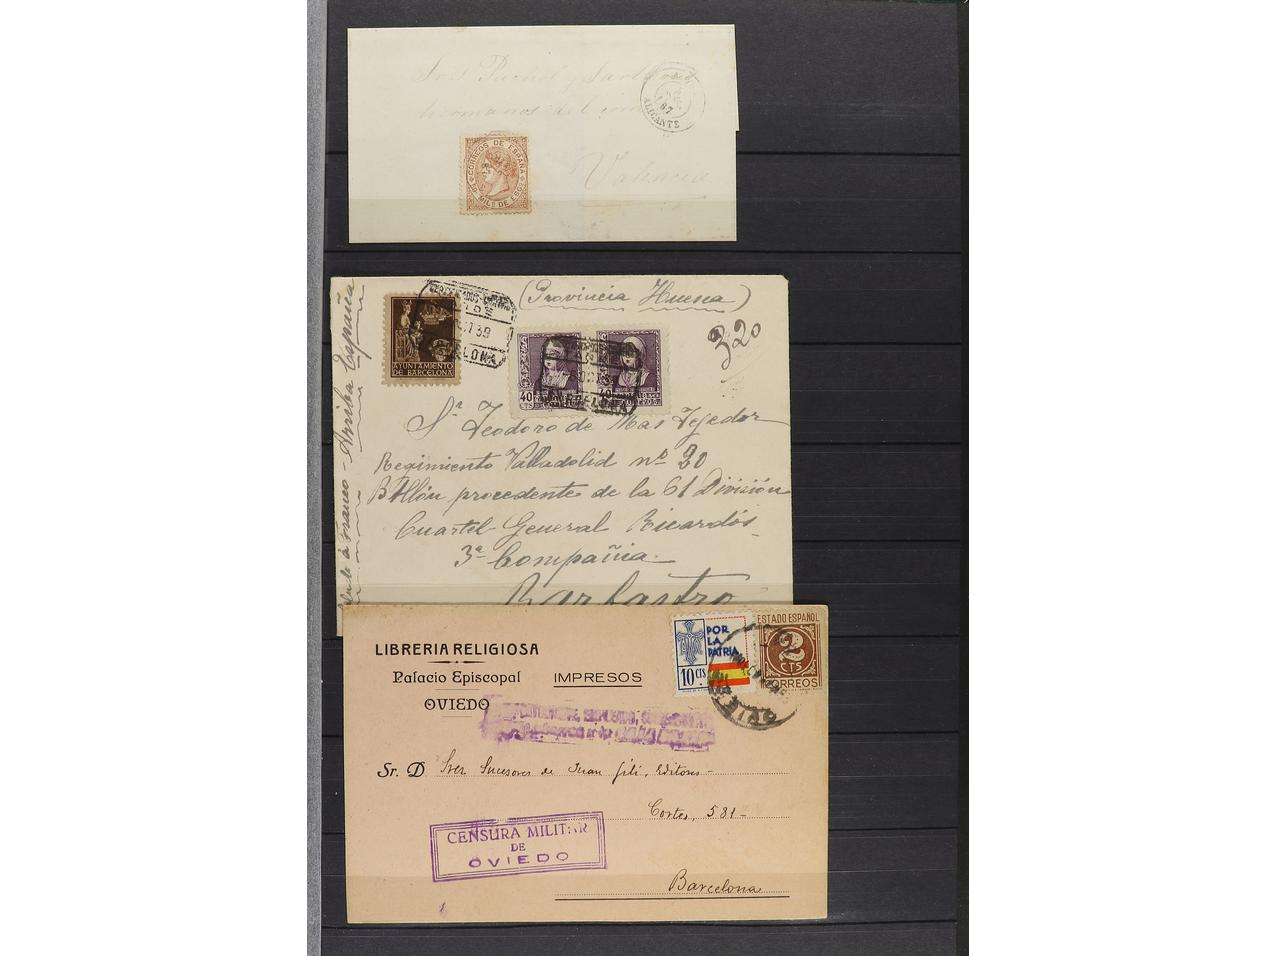 José Puchol y Sarthou
hermanos del com
Valencia
ALICANTE
87
CORREOS DE ESPAÑA
MILS DE ESCO
(Provincia Huesca)
320
Saludo á Franco - Arriba España
AYUNTAMIENTO
DE BARCELONA
CERTIFICADO
OCT 39
BARCELONA
40
CTS
40
CTS
BARCELONA
Sr. Teodoro de Mas Tejedor
Regimiento Valladolid nº 20
Btllón procedente de la 61 División
Cuartel General Ricardós
3ª Compañia
Barbastro
LIBRERIA RELIGIOSA
Palacio Episcopal
OVIEDO
IMPRESOS
POR
LA
PATRIA
10 CTS.
ESTADO ESPAÑOL
2
CTS
CORREOS
OVIEDO
Sr. D Sres. Sucesores de Juan Gili, Editores-
Cortes, 581-
Barcelona
CENSURA MILITAR
DE
OVIEDO